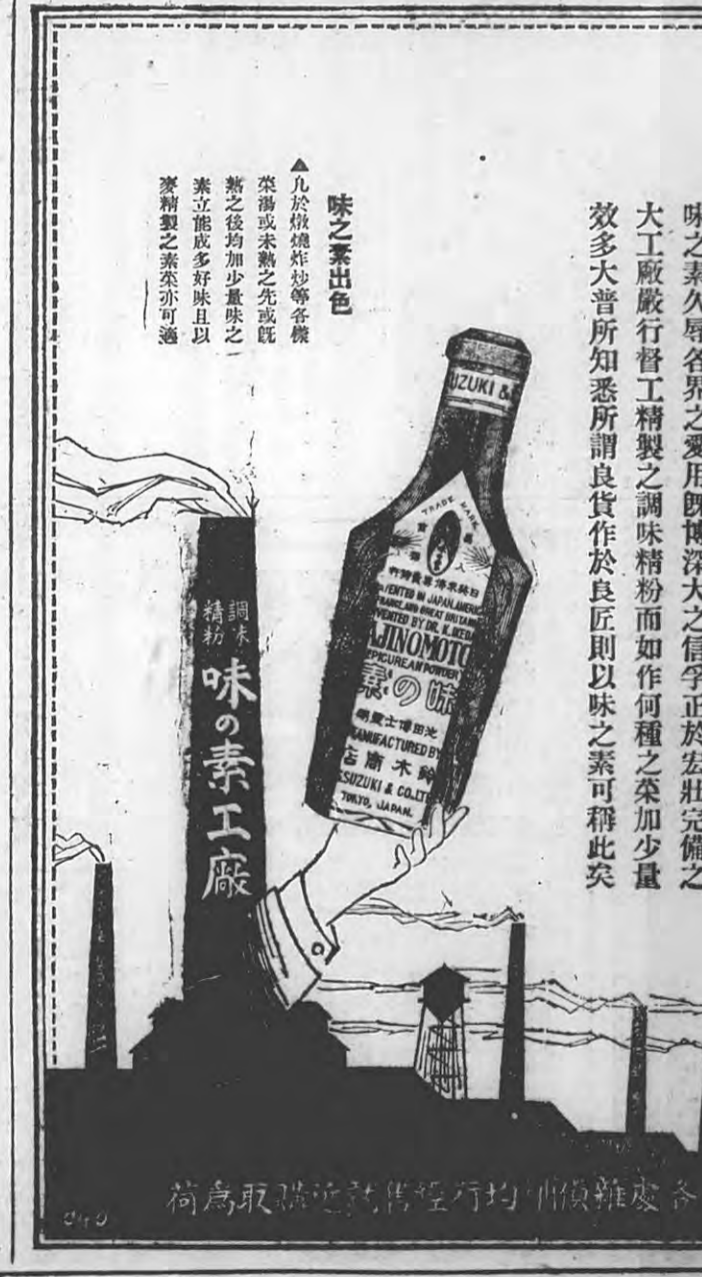 味之素久辱各界之愛用既博深大之信孚正於宏壯完備之
大工廠嚴行督工精製之調味精粉而如作何種之菜加少量
效多大普所知悉所謂良貨作於良匠則以味之素可稱此矣
味之素出色
▲凡於燉燒炸炒等各樣
菜湯或未熟之先或既
熟之後均加少量味之
素立能成多好味且以
麥精製之素菜亦可適
SUZUKI &
TRADE MARK
PATENTED IN JAPAN, AMERICA
FRANCE, AND GREAT BRITAIN
INVENTED BY DR. K. IKEDA
AJINOMOTO
EPICUREAN POWDER
味の素
池田博士發明
MANUFACTURED BY
鈴木商店
S. SUZUKI & CO. LTD
TOKYO, JAPAN.
調味
精粉
味の素工廠
各處雜貨 均行經售就近購取為荷